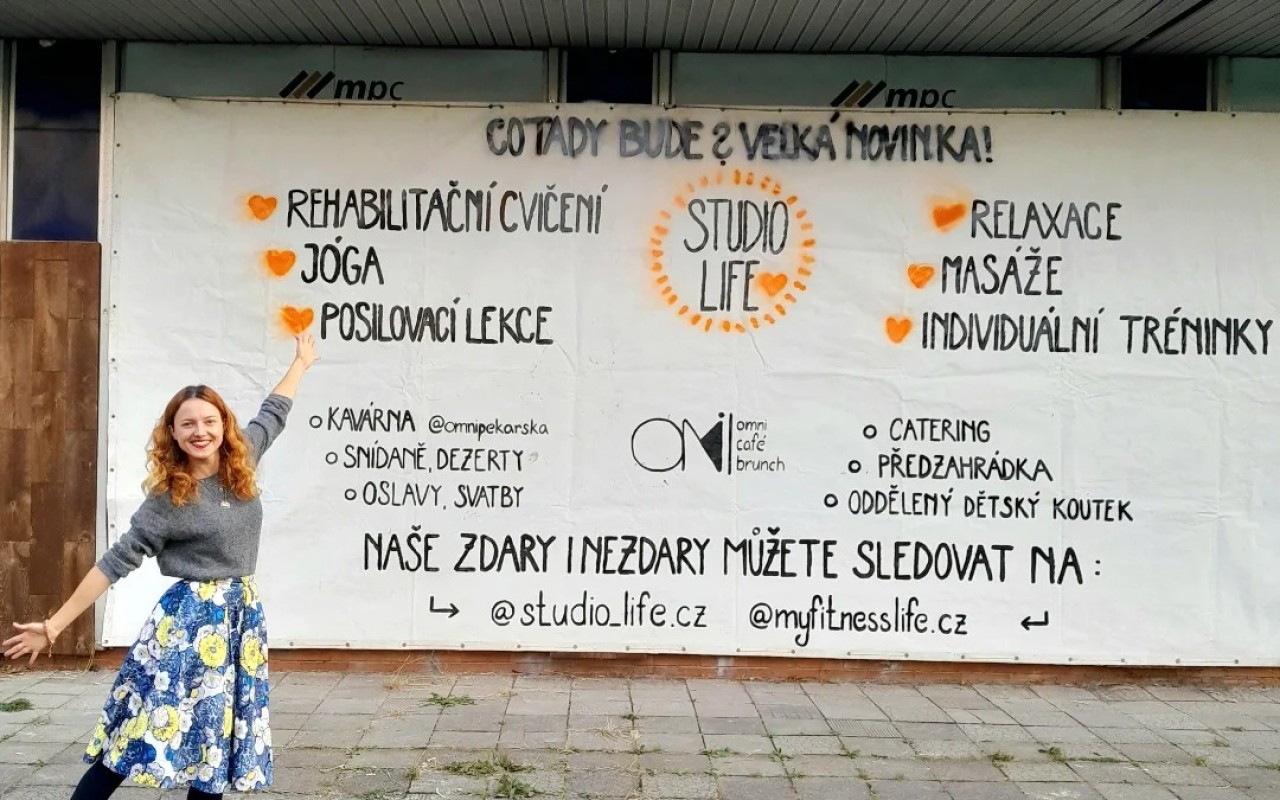 mpc mpc
CO TADY BUDE? VELKÁ NOVINKA!
REHABILITAČNÍ CVIČENÍ
JÓGA
POSILOVACÍ LEKCE
STUDIO
LIFE
RELAXACE
MASÁŽE
INDIVIDUÁLNÍ TRÉNINKY
KAVÁRNA @omnipekarska
SNÍDANĚ, DEZERTY
OSLAVY, SVATBY
OMNI
omni
café
brunch
CATERING
PŘEDZAHRÁDKA
ODDĚLENÝ DĚTSKÝ KOUTEK
NAŠE ZDARY I NEZDARY MŮŽETE SLEDOVAT NA:
@studio_life.cz @myfitnesslife.cz